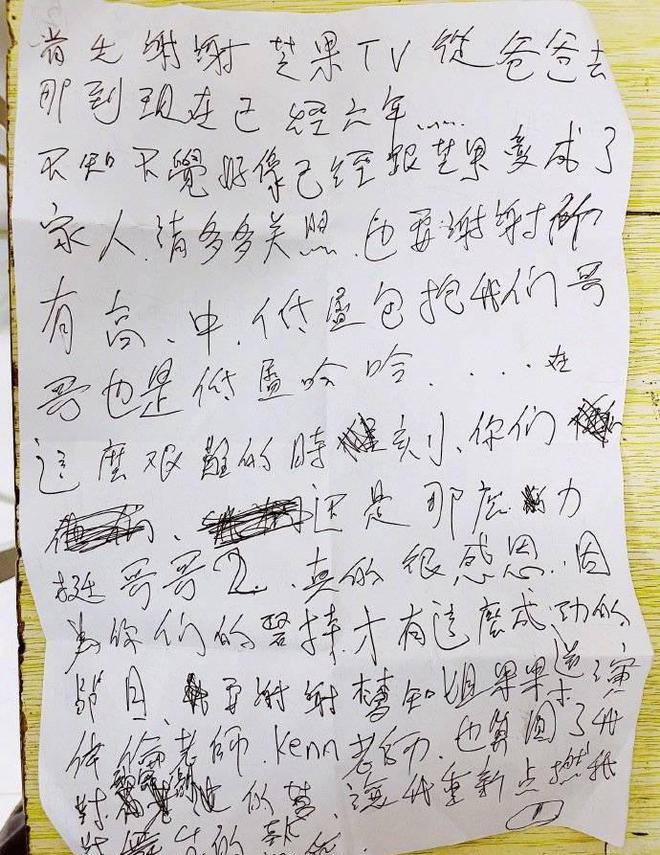 首先謝謝芒果TV從爸爸去
那到現在已經六年......
不知不覺好像已經跟芒果變成了
家人.請多多关照.也要謝謝所
有高、中、低層包括我们哥
哥也是低層哈哈.....在
這麼艰難的時刻、你们
、还是那麼力
挺哥哥2.真的很感恩.因
為你们的堅持才有這麼成功的
節目、要謝謝 知姐果果、導演
偉倫老師.Kenn老師.也算圆了我
對 的夢、讓我重新点燃我
對 的